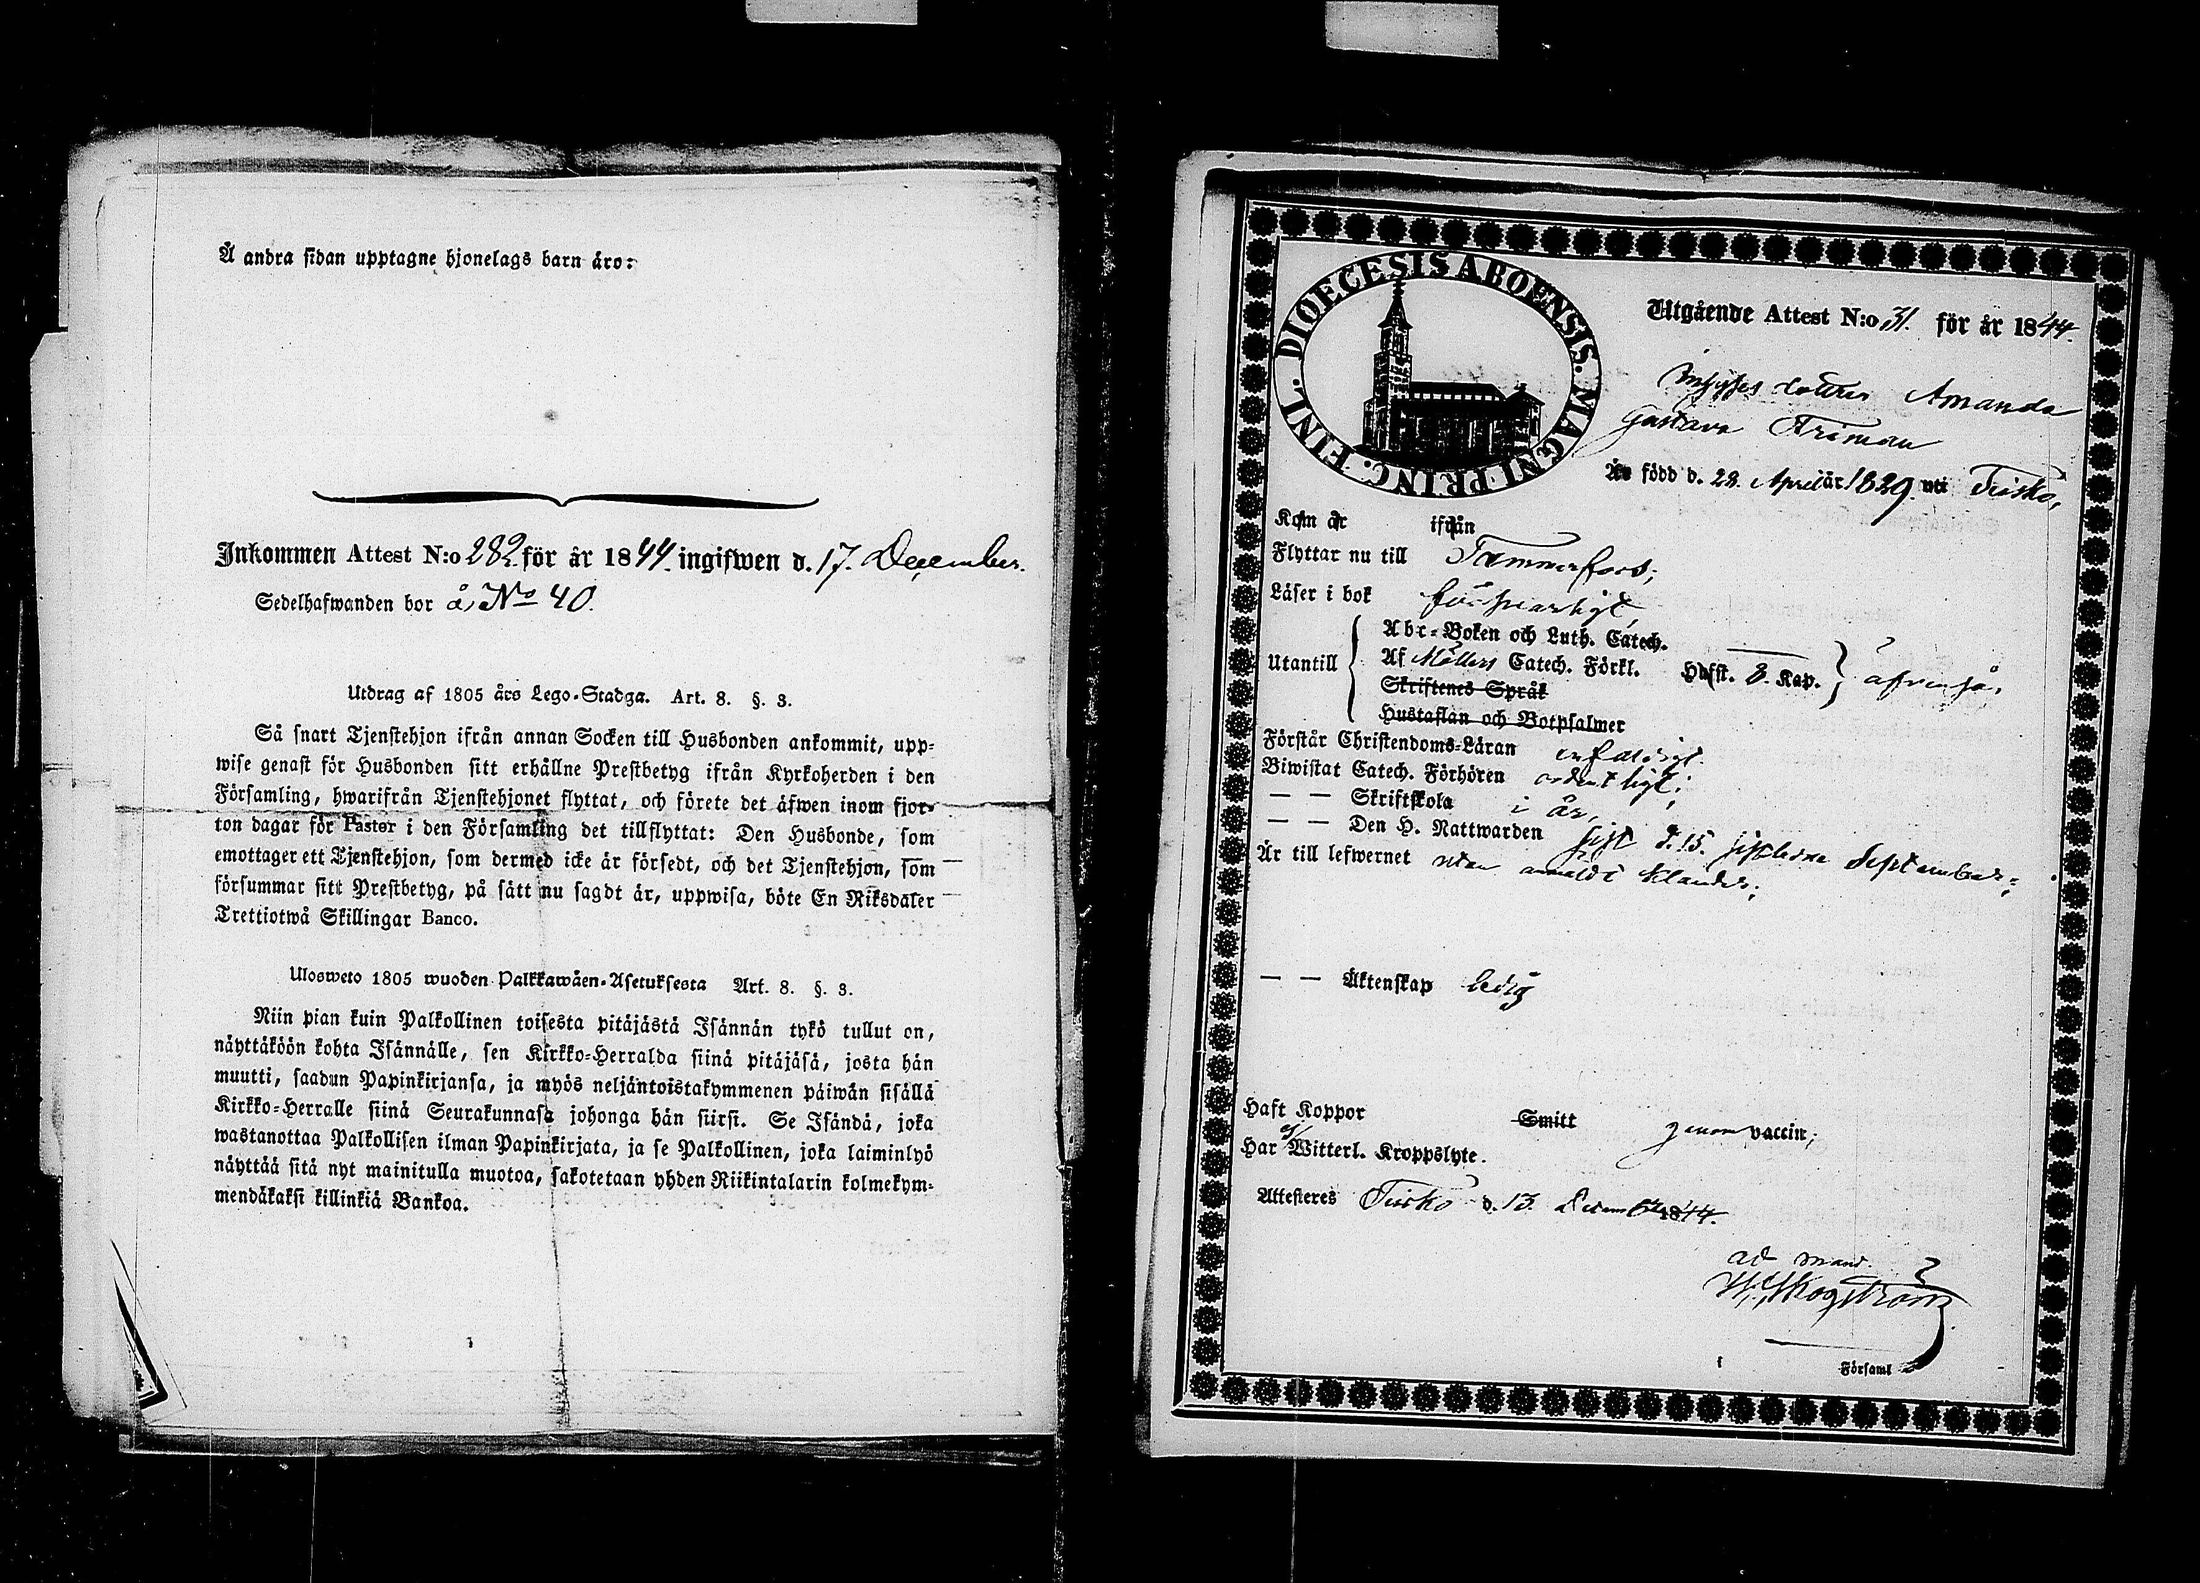 Å andra sidan upptagne hjonelags barn äro:
Inkommen Attest N:o 282. för år 1844. ingifwen d. 17. December.
Sedelhafwanden bor å No 40.
Utdrag af 1805 års Lego-Stadga. Art. 8. §. 3.
Så snart Tjenstehjon ifrån annan Socken till Husbonden ankommit, upp-
wise genast för Husbonden sitt erhållne Prestbetyg ifrån Kyrkoherden i den
Församling, hwarifrån Tjenstehjonet flyttat, och förete det äfwen inom fjor-
ton dagar för Pastor i den Församling det tillflyttat: Den Husbonde, som
emottager ett Tjenstehjon, som dermed icke är försedt, och det Tjenstehjon, som
försummar sitt Prestbetyg, på sätt nu sagdt är, uppwisa, böte En Riksdaler
Trettiotwå Skillingar Banco.
Ulosweto 1805 wuoden Palkkawäen-Asetuksesta Art. 8. §. 3.
Niin pian kuin Palkollinen toisesta pitäjästä Isännän tykö tullut on,
näyttäköön kohta Isännälle, sen Kirkko-Herralda siinä pitäjäsä, josta hän
muutti, saadun Papinkirjansa, ja myös neljäntoistakymmenen päiwän sisällä
Kirkko-Herralle siinä Seurakunnasa johonga hän siirsi. Se Isändä, joka
wastanottaa Palkollisen ilman Papinkirjata, ja se Palkollinen, joka laiminlyö
näyttää sitä nyt mainitulla muotoa, sakotetaan yhden Riikintalarin kolmekym-
mendäkaksi killinkiä Bankoa.
DIOECESIS ABOENSIS. MAGNI PRINC. FINL.
Utgående Attest N:o 31. för år 1844.
dotter Amanda
Gustava
Är född d. 28. April år 1829. uti Tuisko,
Kom år ifrån
Flyttar nu till Tammerfors;
Läser i bok försvarligt,
Abc-Boken och Luth. Catech.
Utantill Af Möllers Catech. Förkl. Hufst. 8. Kap. äfvenså.
Skriftenes Språk
Hustaflan och Botpsalmer
Förstår Christendoms-Läran enfaldigt.
Biwistat Catech. Förhören ordentligt;
— — Skriftskola i år,
— — Den H. Nattwarden sist d. 15. sistledne September;
Är till lefwernet utan anmäldt klander;
— — Äktenskap ledig
Haft Koppor Smitt genom vaccin;
Har ej Witterl. Kroppslyte.
Attesteres Tuisko d. 13. December 1844.
ad mand.
Skogström
Församl